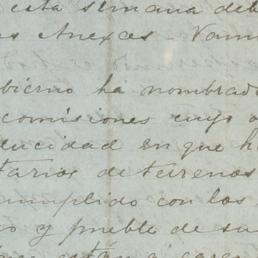 esta semana deb
as Anexas - Vam
bierno ha nombrado
comisiones cuyo o
ducidad en que h
tarios de terrenos
cumplido con los
o y pueble de su